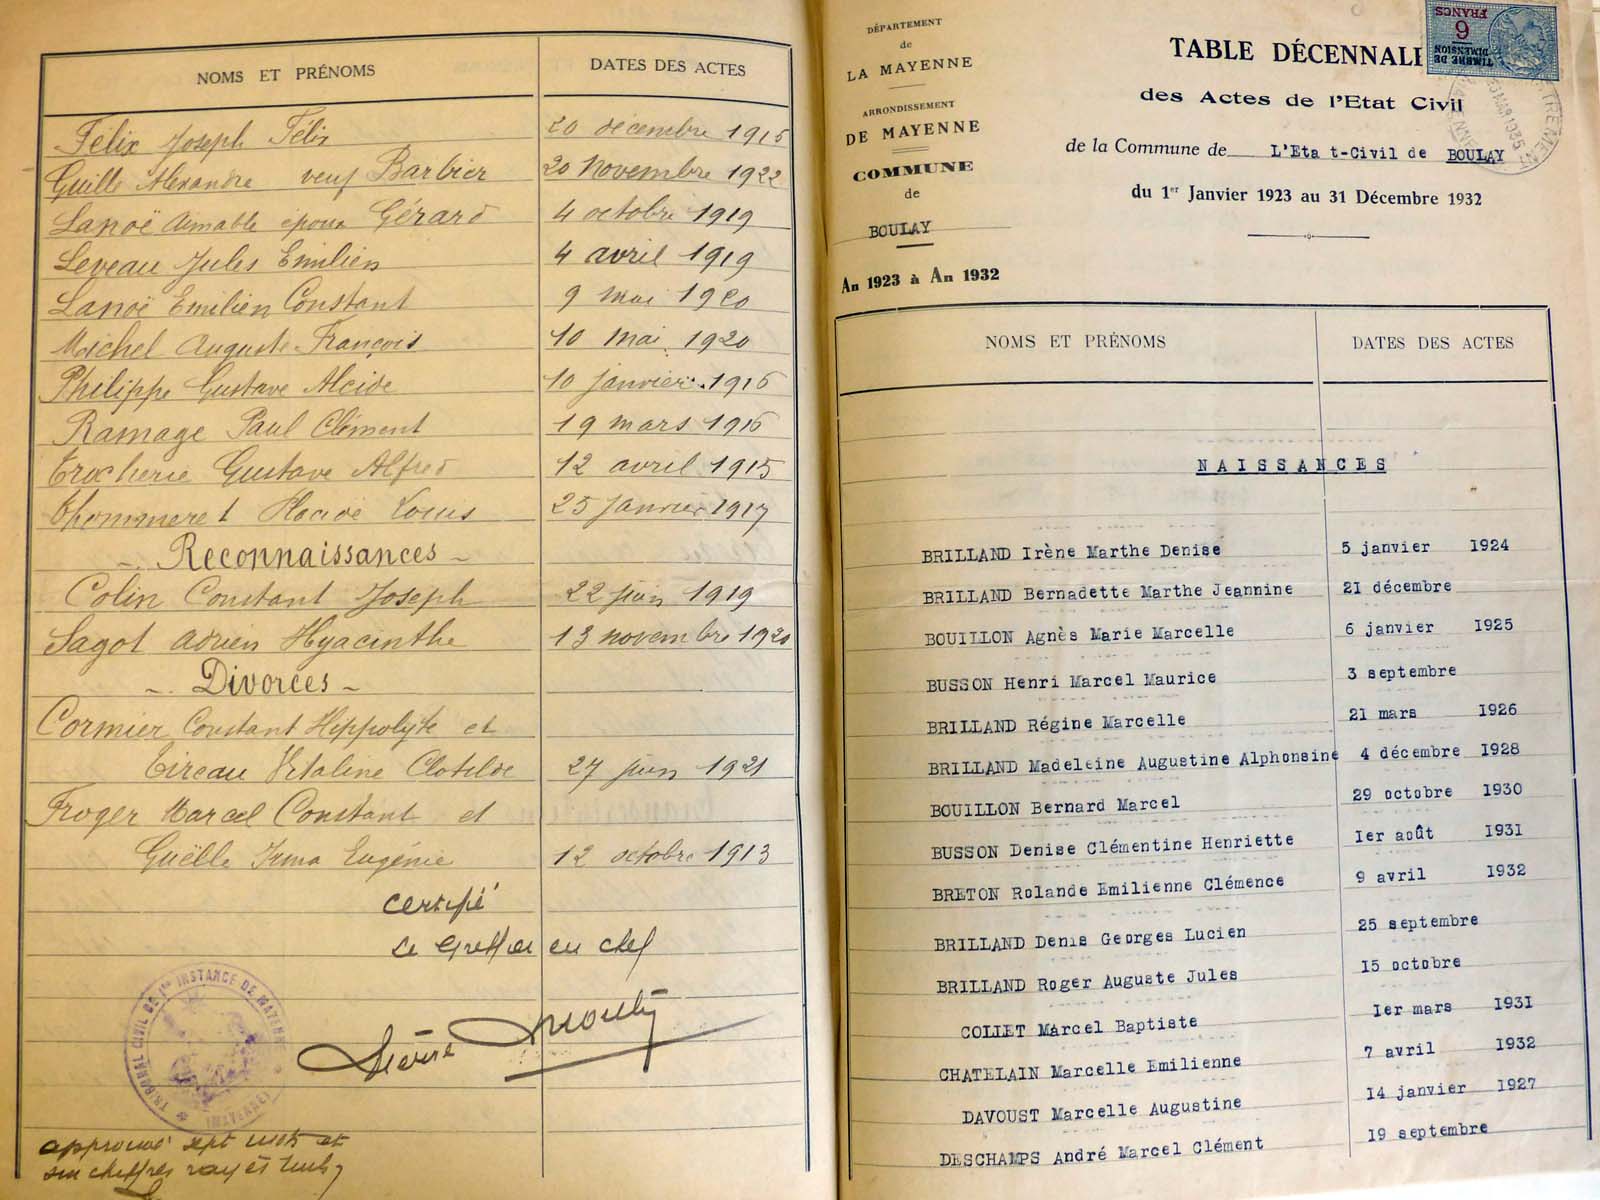 NOMS ET PRÉNOMS DATES DES ACTES
Félix Joseph Félix 20 décembre 1915
Guille Alexandre veuf Barbier 20 novembre 1922
Lanoë Aimable époux Gérard 4 octobre 1919
Leveau Jules Emilien 4 avril 1919
Lanoë Emilien Constant 9 mai 1920
Michel Auguste François 10 mai 1920
Philippe Gustave Alcide 10 janvier 1916
Ramage Paul Clément 19 mars 1916
Trocherie Gustave Alfred 12 avril 1915
Thommeret Louis 25 janvier 1917
Reconnaissances
Colin Constant Joseph 22 juin 1919
Sagot Adrien Hyacinthe 13 novembre 1920
Divorces
Cormier Constant Hippolyte et
Tireau Vitaline Clotilde 27 juin 1921
Froger Marcel Constant et
Guëlle Irma Eugénie 12 octobre 1913
certifié
Le Greffier en chef
TRIBUNAL CIVIL DE 1re INSTANCE DE MAYENNE
(MAYENNE)
approuvé sept mots et
chiffres rayés
DÉPARTEMENT
de
LA MAYENNE
ARRONDISSEMENT
DE MAYENNE
COMMUNE
de
BOULAY
An 1923 à An 1932
TIMBRE DE
DIMENSION
6
FRANCS
TABLE DÉCENNALE
des Actes de l'Etat Civil
de la Commune de L'Eta t-Civil de BOULAY
du 1er Janvier 1923 au 31 Décembre 1932
NOMS ET PRÉNOMS DATES DES ACTES
NAISSANCES
BRILLAND Irène Marthe Denise 5 janvier 1924
BRILLAND Bernadette Marthe Jeannine 21 décembre
BOUILLON Agnès Marie Marcelle 6 janvier 1925
BUSSON Henri Marcel Maurice 3 septembre
BRILLAND Régine Marcelle 21 mars 1926
BRILLAND Madeleine Augustine Alphonsine 4 décembre 1928
BOUILLON Bernard Marcel 29 octobre 1930
BUSSON Denise Clémentine Henriette 1er août 1931
BRETON Rolande Emilienne Clémence 9 avril 1932
BRILLAND Denis Georges Lucien 25 septembre
BRILLAND Roger Auguste Jules 15 octobre
COLLET Marcel Baptiste 1er mars 1931
CHATELAIN Marcelle Emilienne 7 avril 1932
DAVOUST Marcelle Augustine 14 janvier 1927
DESCHAMPS André Marcel Clément 19 septembre